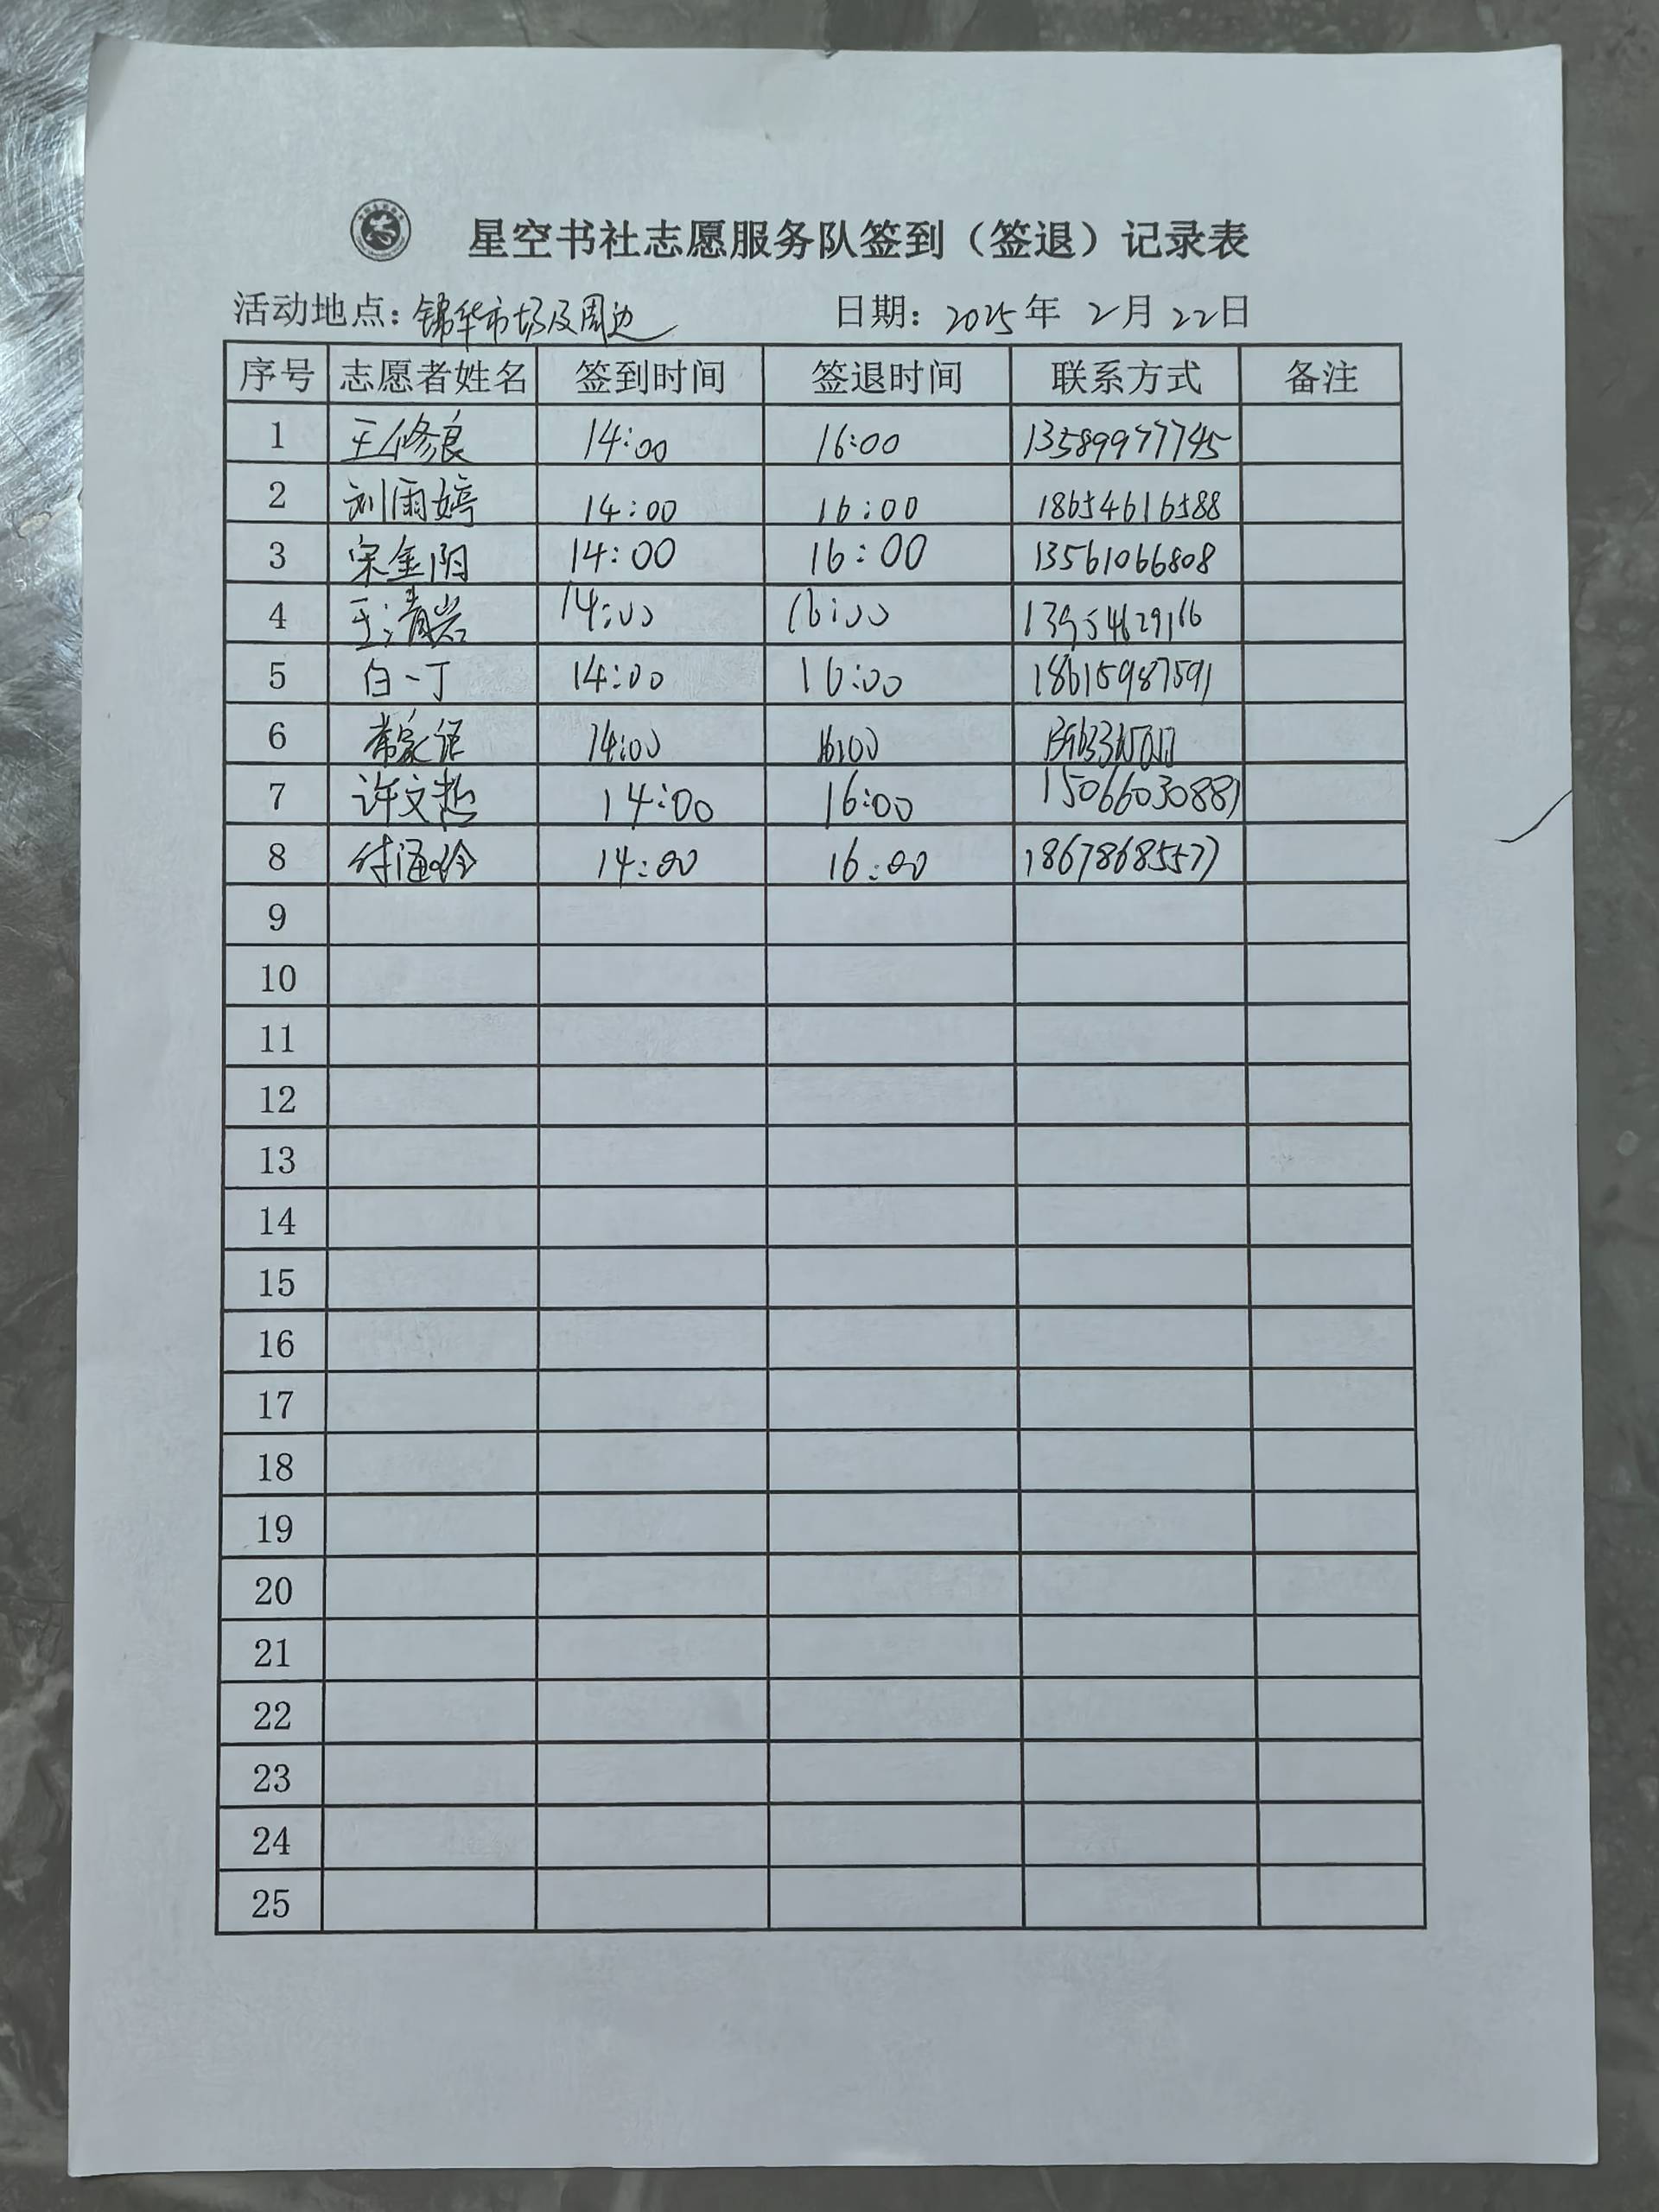 星空书社志愿服务队签到（签退）记录表
活动地点：锦华市场及周边 日期：2025年 2月 22日
序号 志愿者姓名 签到时间 签退时间 联系方式 备注
1 王修良 14:00 16:00 13589977745
2 刘雨婷 14:00 16:00 18654616588
3 宋金阳 14:00 16:00 13561066808
4 王清岩 14:00 16:00 13954629166
5 白一丁 14:00 16:00 18615987591
6 14:00 16:00
7 许文彪 14:00 16:00 15066030887
8 付海玲 14:00 16:00 18678685577
9
10
11
12
13
14
15
16
17
18
19
20
21
22
23
24
25